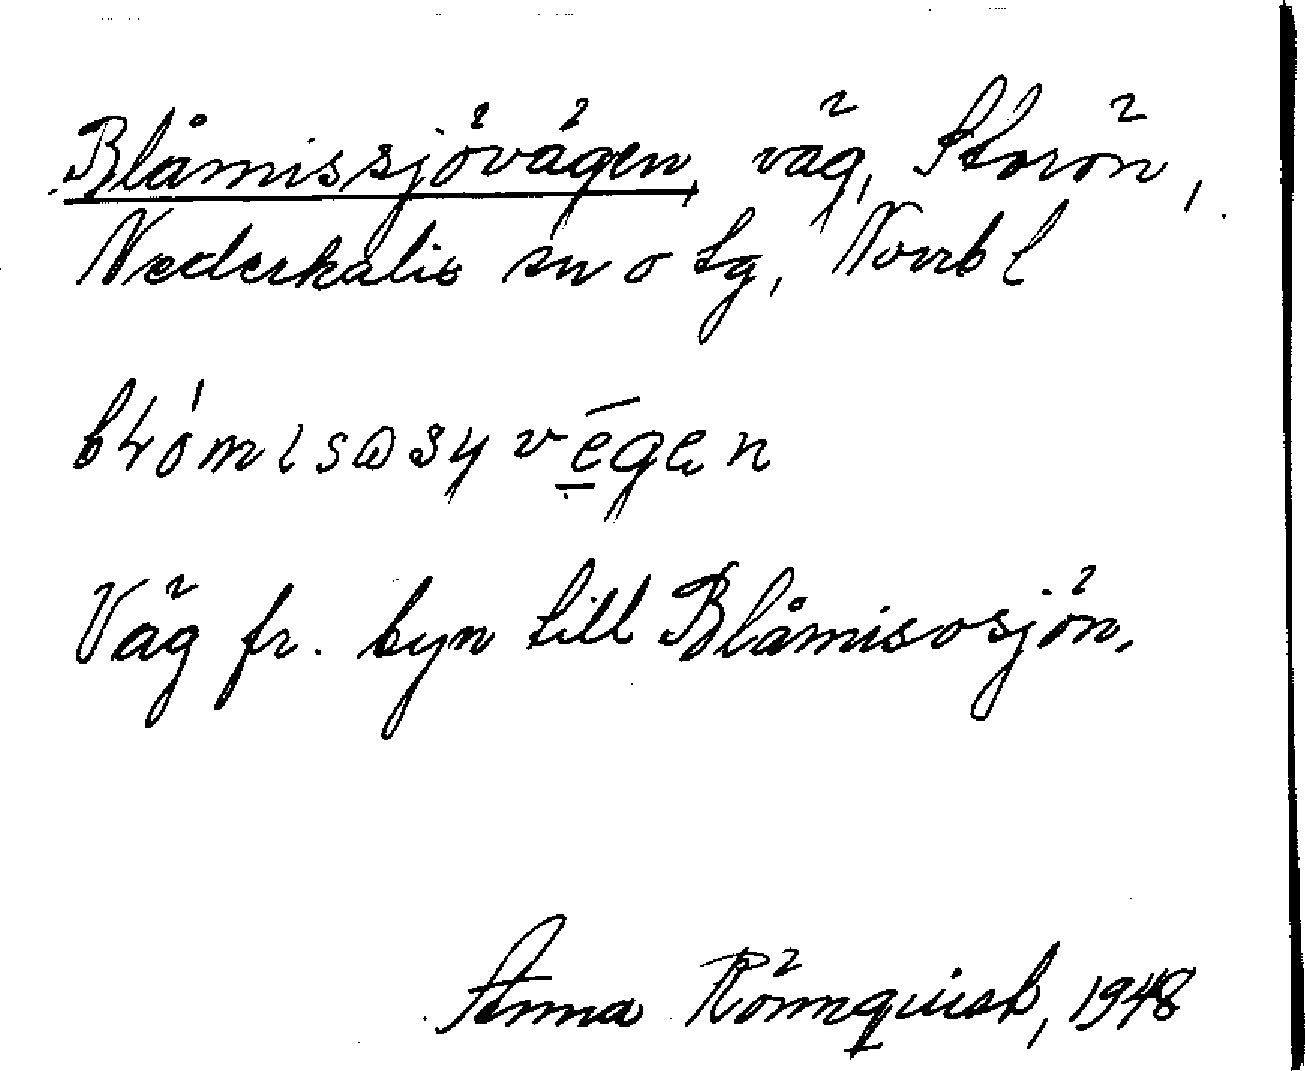 Blåmissjövägen, väg, Storön,
Nederkalix sn o tg, Norrb l
Väg fr. byn till Blåmisosjön.
Anna Rönnquist, 1948